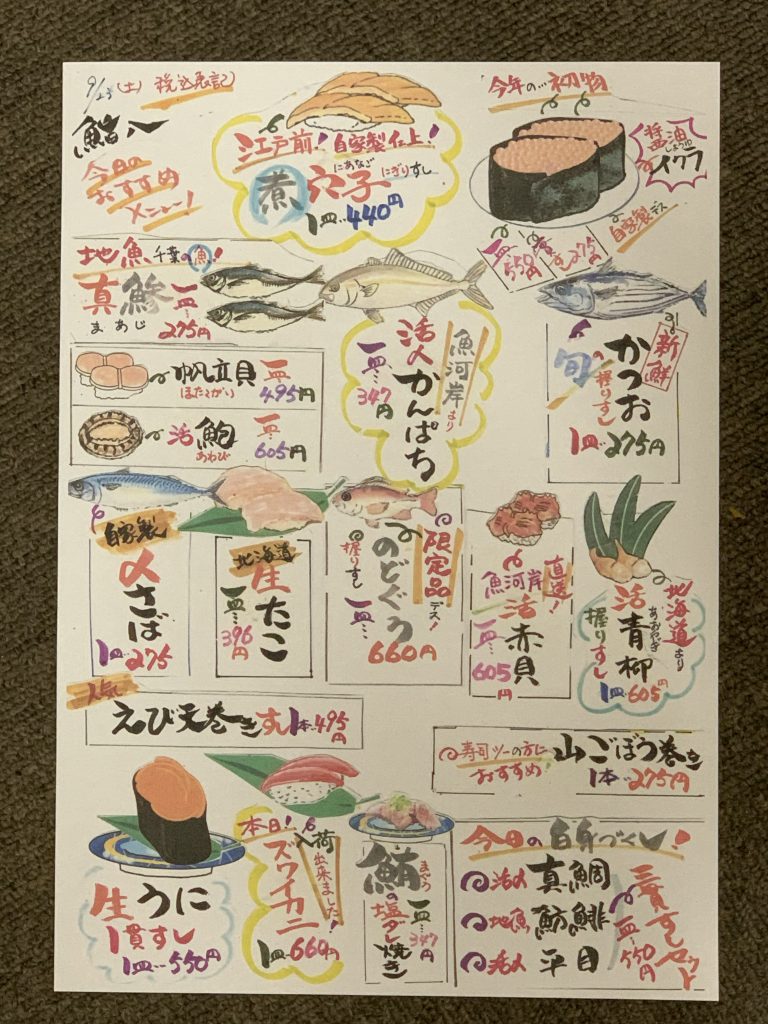 9/23(土) 税込表記
鮨八
今日の
おすすめ
メニュー!
江戸前!自家製仕上!
にあなご
煮穴子にぎりすし
1皿…440円
今年の…初物
醤油
しょうゆ
イクラ
自家製デス
一皿…550円
地魚 千葉の魚!
真鯵
まあじ
一皿…275円
帆立貝
ほたてがい
一皿…495円
活鮑
あわび
一皿…605円
魚河岸より
活〆かんぱち
一皿…347円
新鮮
かつお
旬の握りすし
1皿…275円
自家製
〆さば
1皿…275
北海道
生たこ
一皿…396円
限定品デス!
のどぐろ
握りすし
一皿…660円
魚河岸直送!
活赤貝
一皿…605円
北海道より
あおやぎ
活青柳
握りすし
1皿…605円
人気
えび天巻きすし1本…495円
寿司ツーの方に
おすすめ!
山ごぼう巻き
1本…275円
生うに
1貫すし
1皿…550円
本日!入荷出来ました!
ズワイカニ
1皿…660円
まぐろ
鮪の塩ダレ焼き
一皿…347円
今日の白身づくし!
活〆真鯛
地魚魴鮄
活〆平目
三貫すしセット
一皿…550円